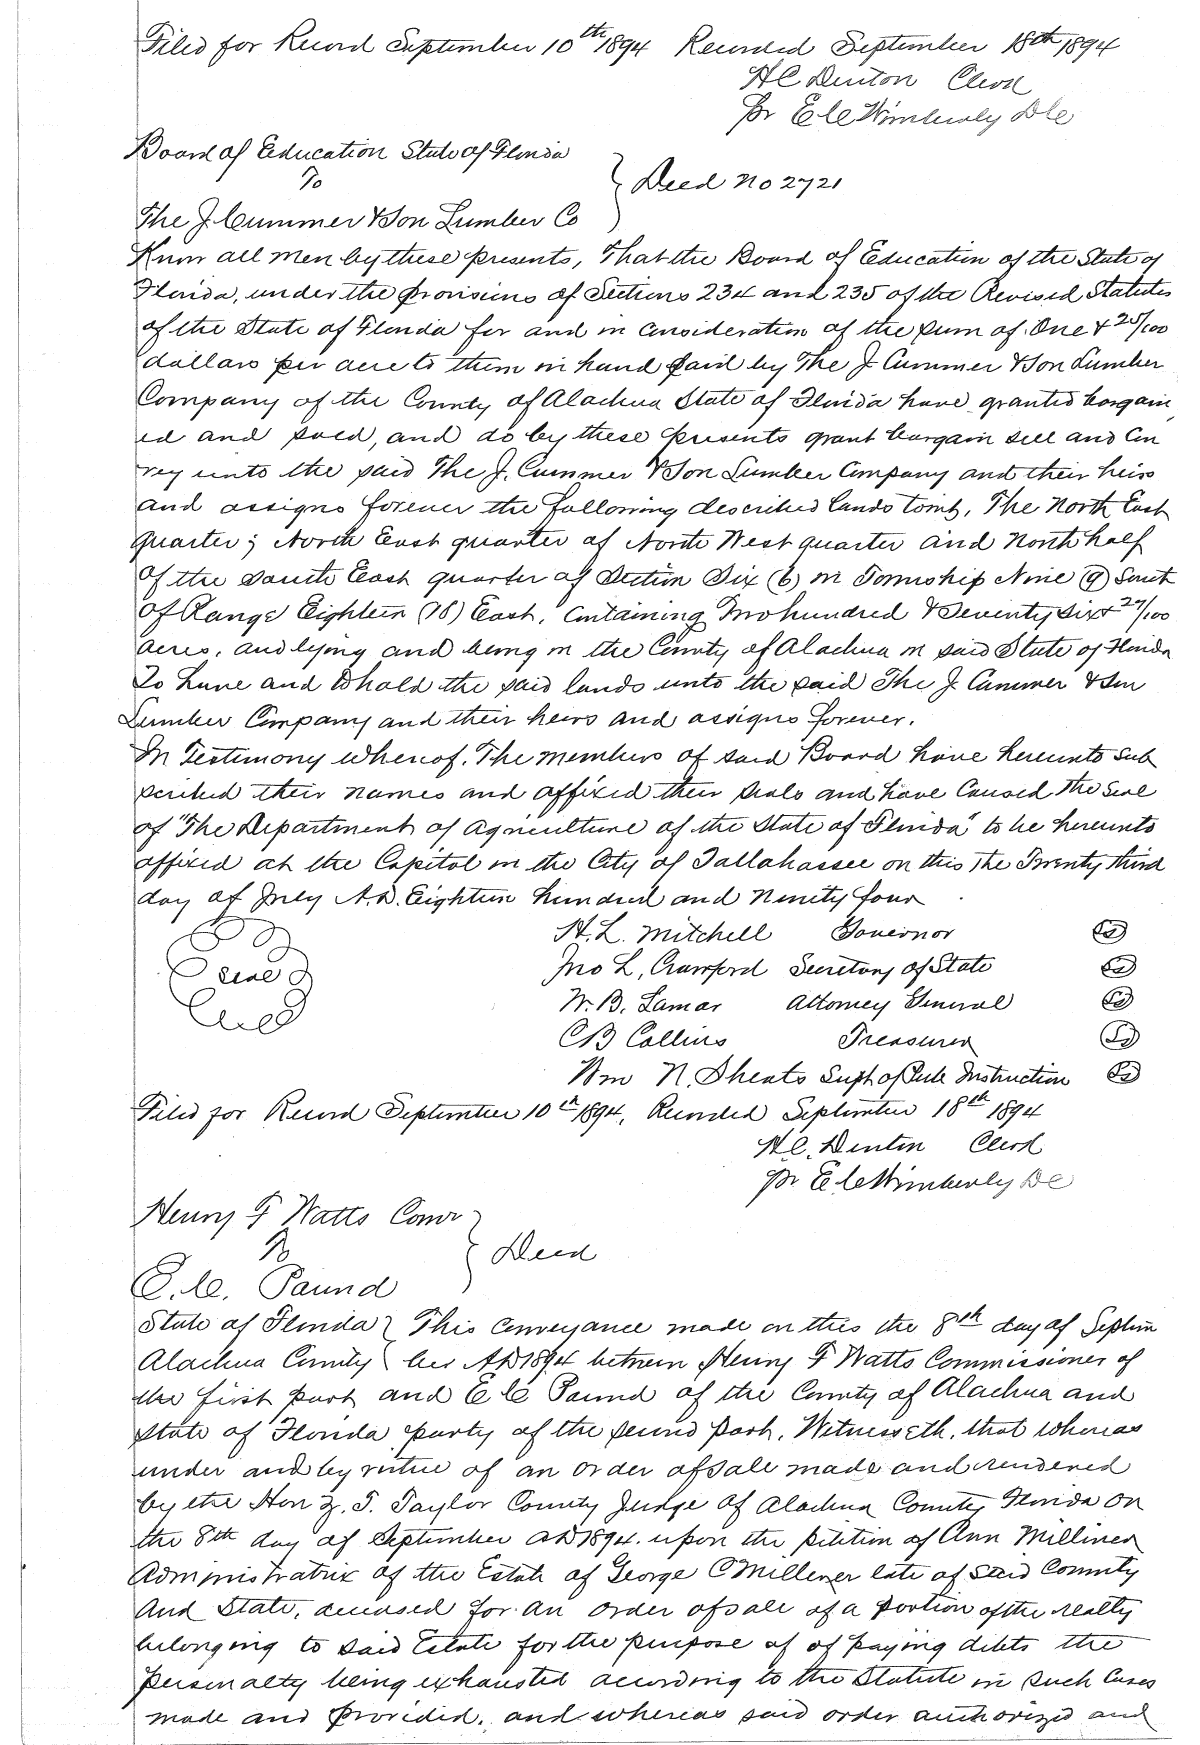 Filed for Record September 10th 1894 Recorded September 18th 1894
H C Denton Clerk
pr E C Wimberly D C
Board of Education State of Florida
To
} Deed No 2721
The J. Cummer & Son Lumber Co
Know all men by these presents, That the Board of Education of the State of
Florida, under the provisions of Sections 234 and 235 of the Revised Statutes
of the State of Florida for and in consideration of the sum of One & 25/100
dollars per acre to them in hand paid by The J Cummer & Son Lumber
Company of the County of Alachua State of Florida have granted bargain
ed and sold, and do by these presents grant bargain sell and Con
vey unto the said The J. Cummer & Son Lumber Company and their heirs
and assigns forever the following described lands towit, The North East
quarter; North East quarter of North West quarter and North half
of the South East quarter of Section Six (6) in Township Nine (9) South
of Range Eighteen (18) East, Containing Two hundred & Seventy six & 27/100
acres, and lying and being in the County of Alachua in said State of Florida
To Have and to hold the said lands unto the said The J. Cummer & Son
Lumber Company and their heirs and assigns forever.
In Testimony whereof, The members of said Board have hereunto Sub
scribed their names and affixed their seals and have Caused the Seal
of "The Department of Agriculture of the State of Florida" to be hereunto
affixed at the Capitol in the City of Tallahassee on this The Twenty third
day of July A.D. Eighteen hundred and Ninety four
H. L. Mitchell Governor
Jno L, Crawford Secretary of State
Seal
W. B. Lamar Attorney General
C B Collins Treasurer
Wm N. Sheats Supt of Pub Instruction
Filed for Record September 10th 1894, Recorded September 18th 1894
H. C. Denton Clerk
pr E C Wimberly D C
Henry F Watts Comr
To
} Deed
E. C. Pound
State of Florida } This Conveyance made on this the 8th day of Septem
Alachua County } ber AD 1894 between Henry F Watts Commissioner of
the first part and E C Pound of the County of Alachua and
State of Florida party of the second part, Witnesseth, that whereas
under and by virtue of an order of sale made and rendered
by the Hon Z. T. Taylor County Judge of Alachua County Florida on
the 8th day of September AD 1894. upon the petition of Ann Milliner
Administratrix of the Estate of George C Millener late of said County
And State, deceased for an order of sale of a portion of the realty
belonging to said Estate for the purpose of of paying debts the
personalty being exhausted according to the Statute in such Cases
made and provided, and whereas said order authorized and